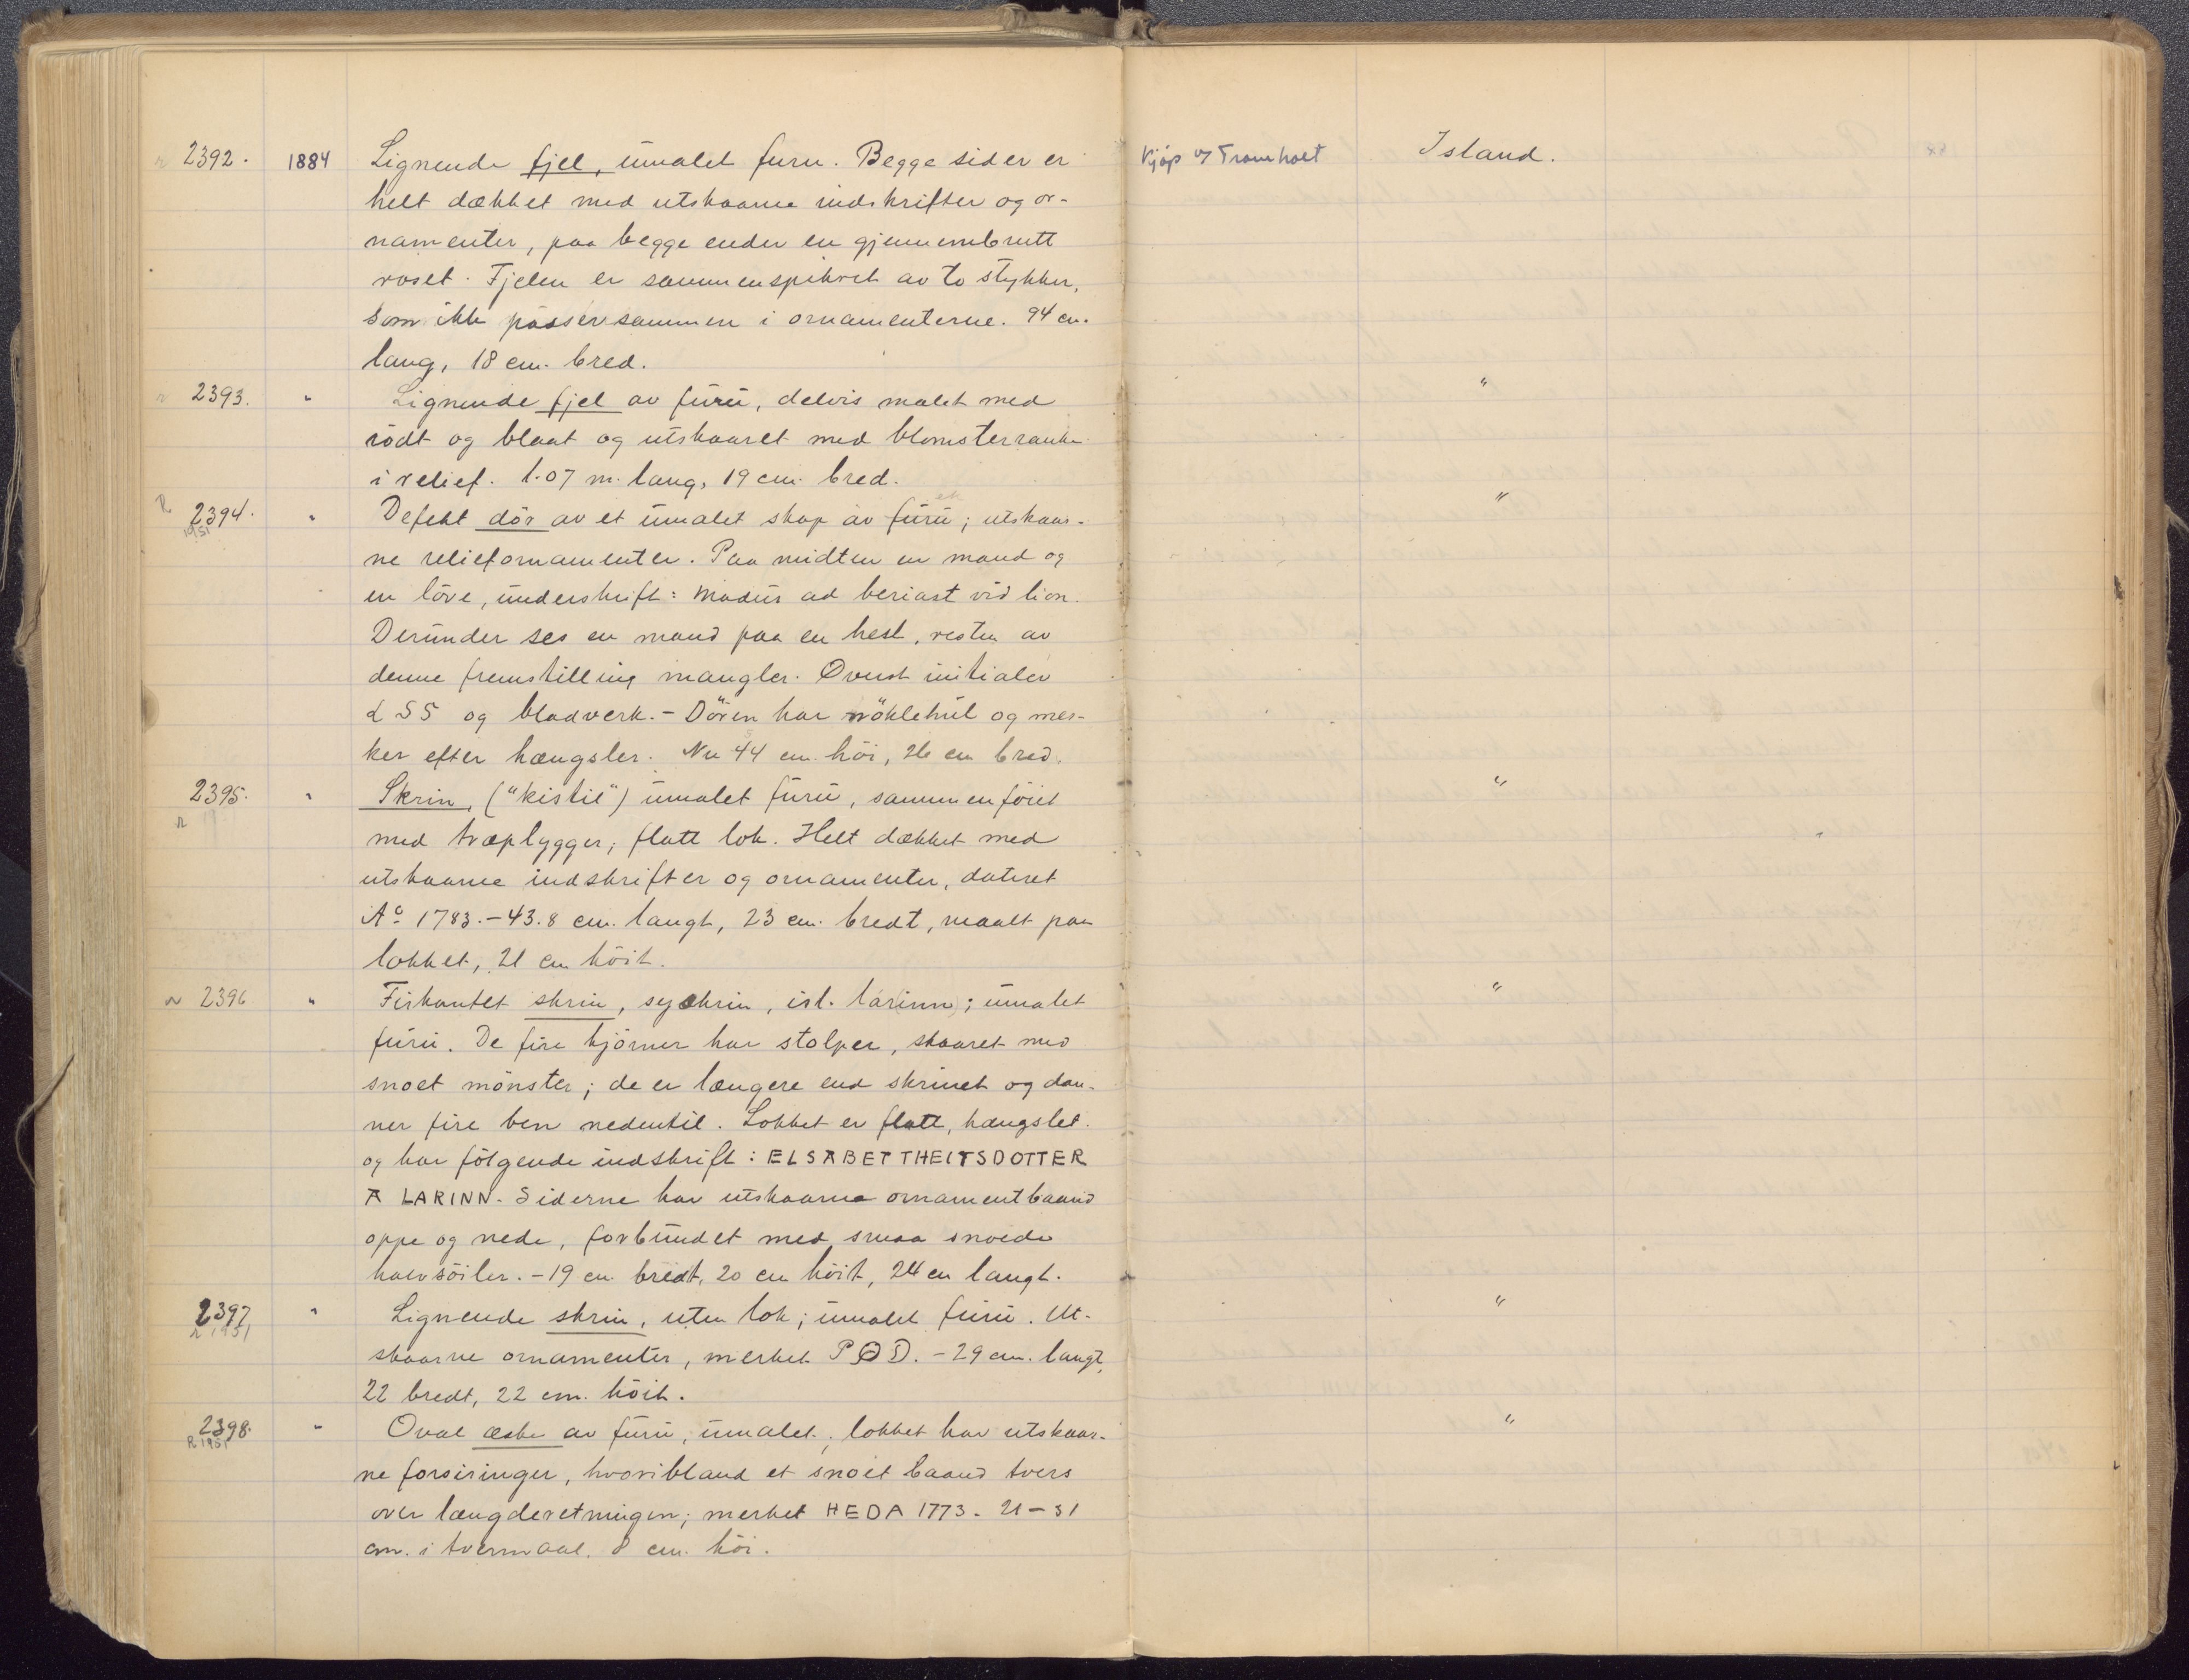 r 2392. 1884 Lignende fjel, umalet furu. Begge sider er Kjøp af Tramholt Island. xx
helt dækket med utskaarne indskrifter og or-
namenter, paa begge ender en gjennembrutt
roset. Fjelen er sammenspikret av to stykker,
som ikke passer sammen i ornamenterne. 94 cm.
lang, 18 cm. bred.
r 2393. " Lignende fjel av furu, delvis malet med "
rödt og blaat og utskaaret med blomsterranke
i relief. 1.07 m. lang, 19 cm. bred.
R 2394. " Defekt dör av et umalet skap av furu; utskaar- "
1951
ne reliefornamenter. Paa midten en mand og
en löve, underskrift: Madur ad beriast vid lion.
Derunder ses en mand paa en hest, resten av
denne fremstilling mangler. Øverst initialer
L S S og bladverk. - Dören har nöklehul og mer-
ker efter hængsler. Nu 44 cm. höi, 26 cm bred.
2395. " Skrin, ("kistil") umalet furu, sammenföiet "
r 19
med træplygger; flatt lok. Helt dækket med
utskaarne indskrifter og ornamenter, dateret
Aº 1783. - 43.8 cm. langt, 23 cm. bredt, maalt paa
lokket, 21 cm höit.
r 2396 " Firkantet skrin, syskrin, isl. lár(inn); umalet "
furu. De fire hjörner har stolper, skaaret med
snoet mönster; de er længere end skrinet og dan-
ner fire ben nedentil. Lokket er flatt, hængslet
og har fölgende indskrift: ELSABET THEITSDOTTER
A LARINN. Siderne har utskaarne ornamentbaand
oppe og nede, forbundet med smaa snoede
halvsöiler. - 19 cm. bredt, 20 cm höit, 24 cm langt.
2397 " Lignende skrin, uten lok; umalet furu. Ut- "
r 1951
skaarne ornamenter, merket P Ø D. - 29 cm. langt,
22 bredt, 22 cm. höit.
2398. " Oval æske av furu, umalet; lokket har utskaar- "
R 1951
ne forsiringer, hvoribland et snoet baand tvers
over længderetningen; merket HEDA 1773. 21-31
cm. i tvermaal. 8 cm. höi.